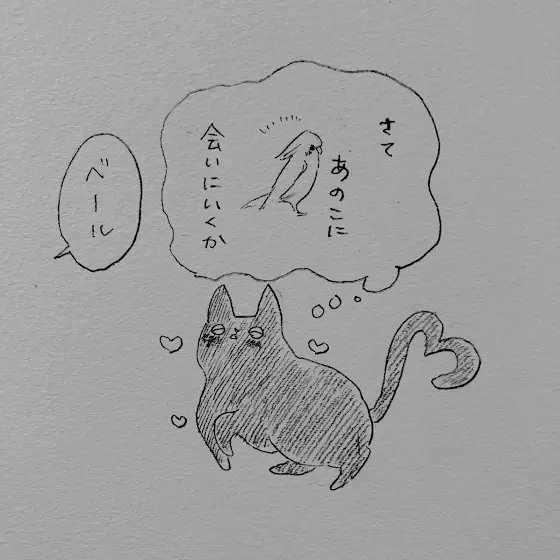 さて
あのこに
会いにいくか
ベール